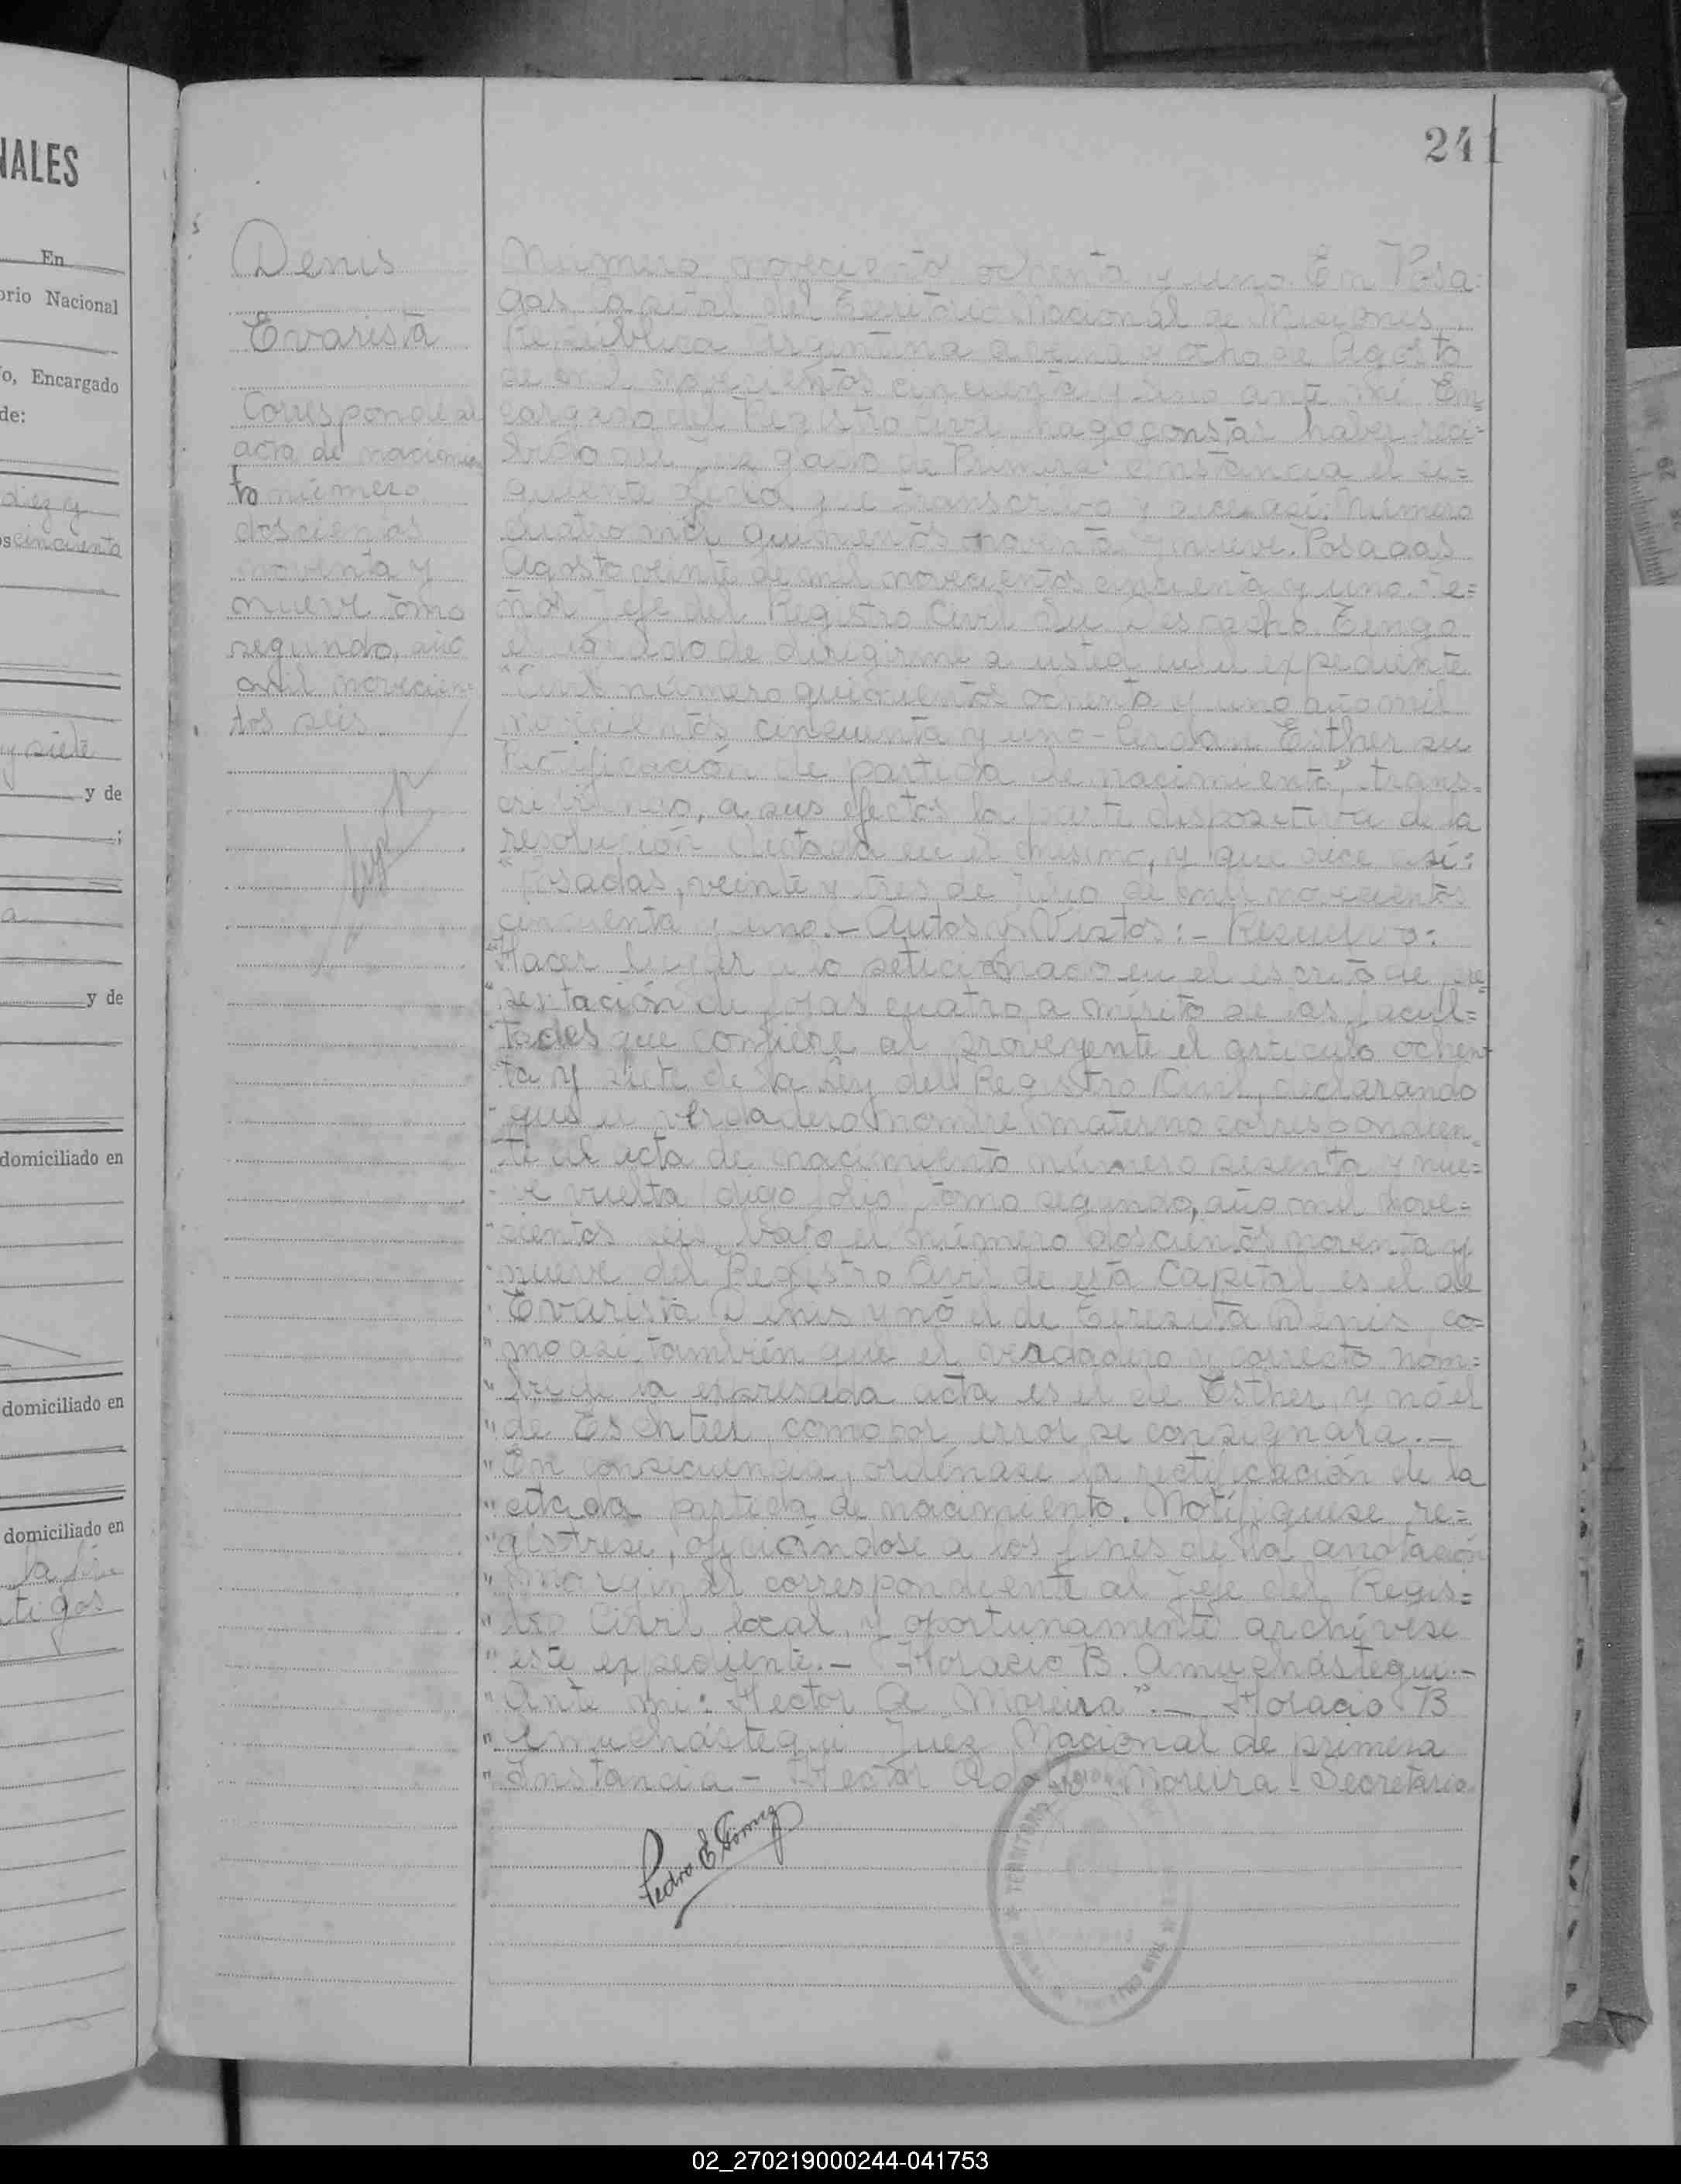 NALES
En
orio Nacional
o, Encargado
de:
diez y
os cincuenta
y siete
y de
a
y de
domiciliado en
domiciliado en
domiciliado en
la
tigos
241
Denis
Evarista
Corresponde al
acta de nacimien
to número
doscientos
noventa y
nueve tomo
segundo, año
mil novecien=
tos seis
Número novecientos ochenta y uno. En Posa-
das Capital del Territorio Nacional de Misiones
República Argentina a veinte y ocho de Agosto
de mil novecientos cincuenta y uno ante mi En=
cargado del Registro Civil hago constar haber reci=
bido del Juzgado de Primera Instancia el si=
guiente oficio que transcribo y dice así: Número
cuatro mil quinientos noventa y nueve. Posadas
Agosto veinte de mil novecientos cincuenta y uno. Se=
ñor Jefe del Registro Civil Su Despacho. Tengo
el agrado de dirigirme a usted en el expediente
"Civil número quinientos ochenta y uno año mil
novecientos cincuenta y uno - Esther su
Rectificación de partida de nacimiento", trans=
cribiendo, a sus efectos la parte dispositiva de la
resolución dictada en el mismo, y que dice así:
"Posadas, veinte y tres de Julio de mil novecientos
cincuenta y uno.- Autos y Vistos:- Resuelvo:
"Hacer lugar a lo peticionado en el escrito de pre=
"sentación de fojas cuatro a mérito de las facul=
"tades que confiere al proveyente el artículo ochen-
"ta y siete de la Ley del Registro Civil, declarando
"que el verdadero nombre materno correspondien=
"te al acta de nacimiento número sesenta y nue=
"ve vuelta digo folio tomo segundo, año mil nove=
"cientos seis, bajo el número doscientos noventa y
"nueve del Registro Civil de esta Capital es el de
"Evarista Denis y nó el de Teresita Denis, co=
"mo así también que el verdadero y correcto nom=
"bre de la expresada acta es el de Esther, y nó el
"de como por error se consignara.-
"En consecuencia, ordénase la rectificación de la
"citada partida de nacimiento. Notifíquese, re=
"gístrese, oficiándose a los fines de la anotación
"marginal correspondiente al Jefe del Regis=
"tro Civil local, y oportunamente archívese
"este expediente.- Horacio B. Amuchástegui.-
"Ante mi: Hector A. Moreira".- Horacio B
"Amuchástegui Juez Nacional de primera
"Instancia - Hector Adolfo Moreira - Secretario.
Pedro E. Gómez
TERRITORIO
02_270219000244-041753